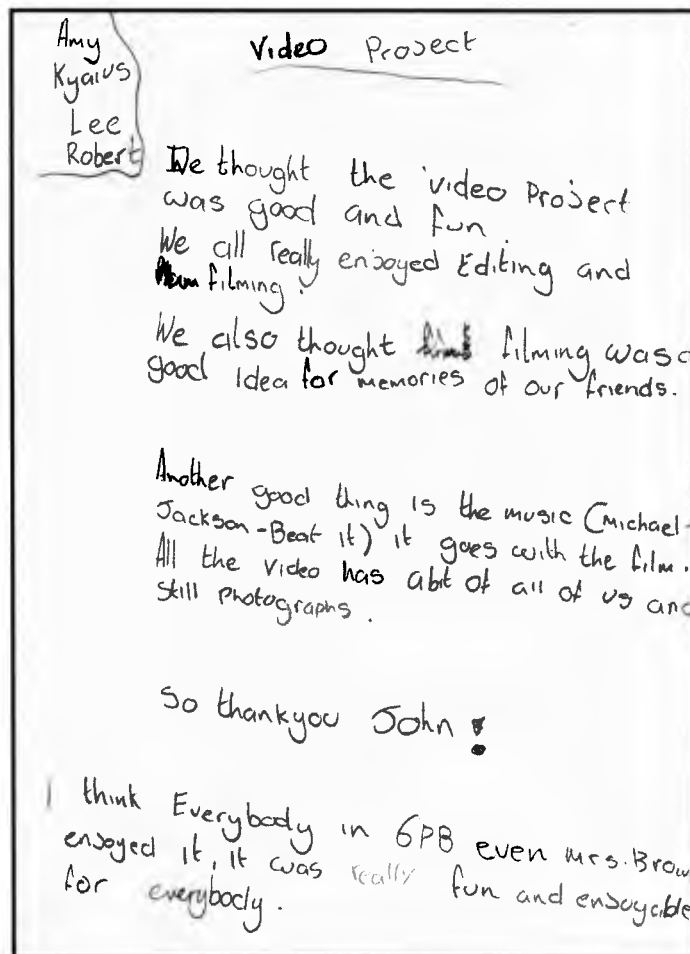 Amy
Kyaius
Lee
Robert
Video Project
We thought the video Project
was good and fun.
We all really enjoyed Editing and
filming.
We also thought filming was a
good Idea for memories of our friends.
Another good thing is the music (Michael-
Jackson-Beat it) it goes with the film.
All the video has abit of all of us and
still Photographs.
So thankyou John!
I think Everybody in 6PB even Mrs. Brow
enjoyed it, it was really fun and enjoyable
for everybody.